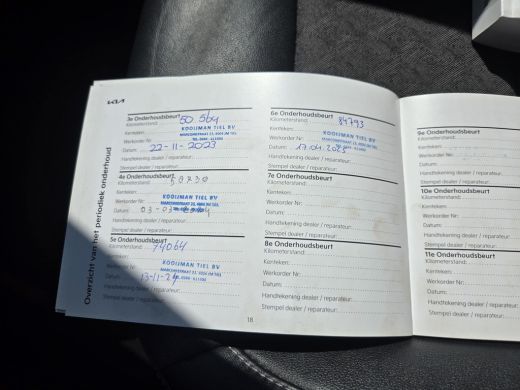 KIA
Overzicht van het periodiek onderhoud
3e Onderhoudsbeurt
Kilometerstand: 50 564
Kenteken:
KOOIJMAN TIEL BV
Werkorder Nr:
Datum: 22-11-2023
Handtekening dealer / reparateur:
Stempel dealer / reparateur:
4e Onderhoudsbeurt
Kilometerstand:
Kenteken:
KOOIJMAN TIEL BV
Werkorder Nr:
Datum: 03-0
Handtekening dealer / reparateur:
Stempel dealer / reparateur:
5e Onderhoudsbeurt
Kilometerstand: 74064
Kenteken:
KOOIJMAN TIEL BV
Werkorder Nr:
Datum: 13-11-24
Handtekening dealer / reparateur:
Stempel dealer / reparateur:
18
6e Onderhoudsbeurt
Kilometerstand: 84793
Kenteken:
KOOIJMAN TIEL BV
Werkorder Nr:
Datum: 17-04-2025
Handtekening dealer / reparateur:
Stempel dealer / reparateur:
7e Onderhoudsbeurt
Kilometerstand:
Kenteken:
Werkorder Nr:
Datum:
Handtekening dealer / reparateur:
Stempel dealer / reparateur:
8e Onderhoudsbeurt
Kilometerstand:
Kenteken:
Werkorder Nr:
Datum:
Handtekening dealer / reparateur:
Stempel dealer / reparateur:
9e Onderhoudsbeurt
Kilometerstand:
Kenteken:
Werkorder Nr:
Datum:
Handtekening dealer / repara
Stempel dealer / reparateur:
10e Onderhoudsbeurt
Kilometerstand:
Kenteken:
Werkorder Nr:
Datum:
Handtekening dealer / reparateur:
Stempel dealer / reparateur:
11e Onderhoudsbeurt
Kilometerstand:
Kenteken:
Werkorder Nr:
Datum:
Handtekening dealer / reparateur:
Stempel dealer / reparateur: